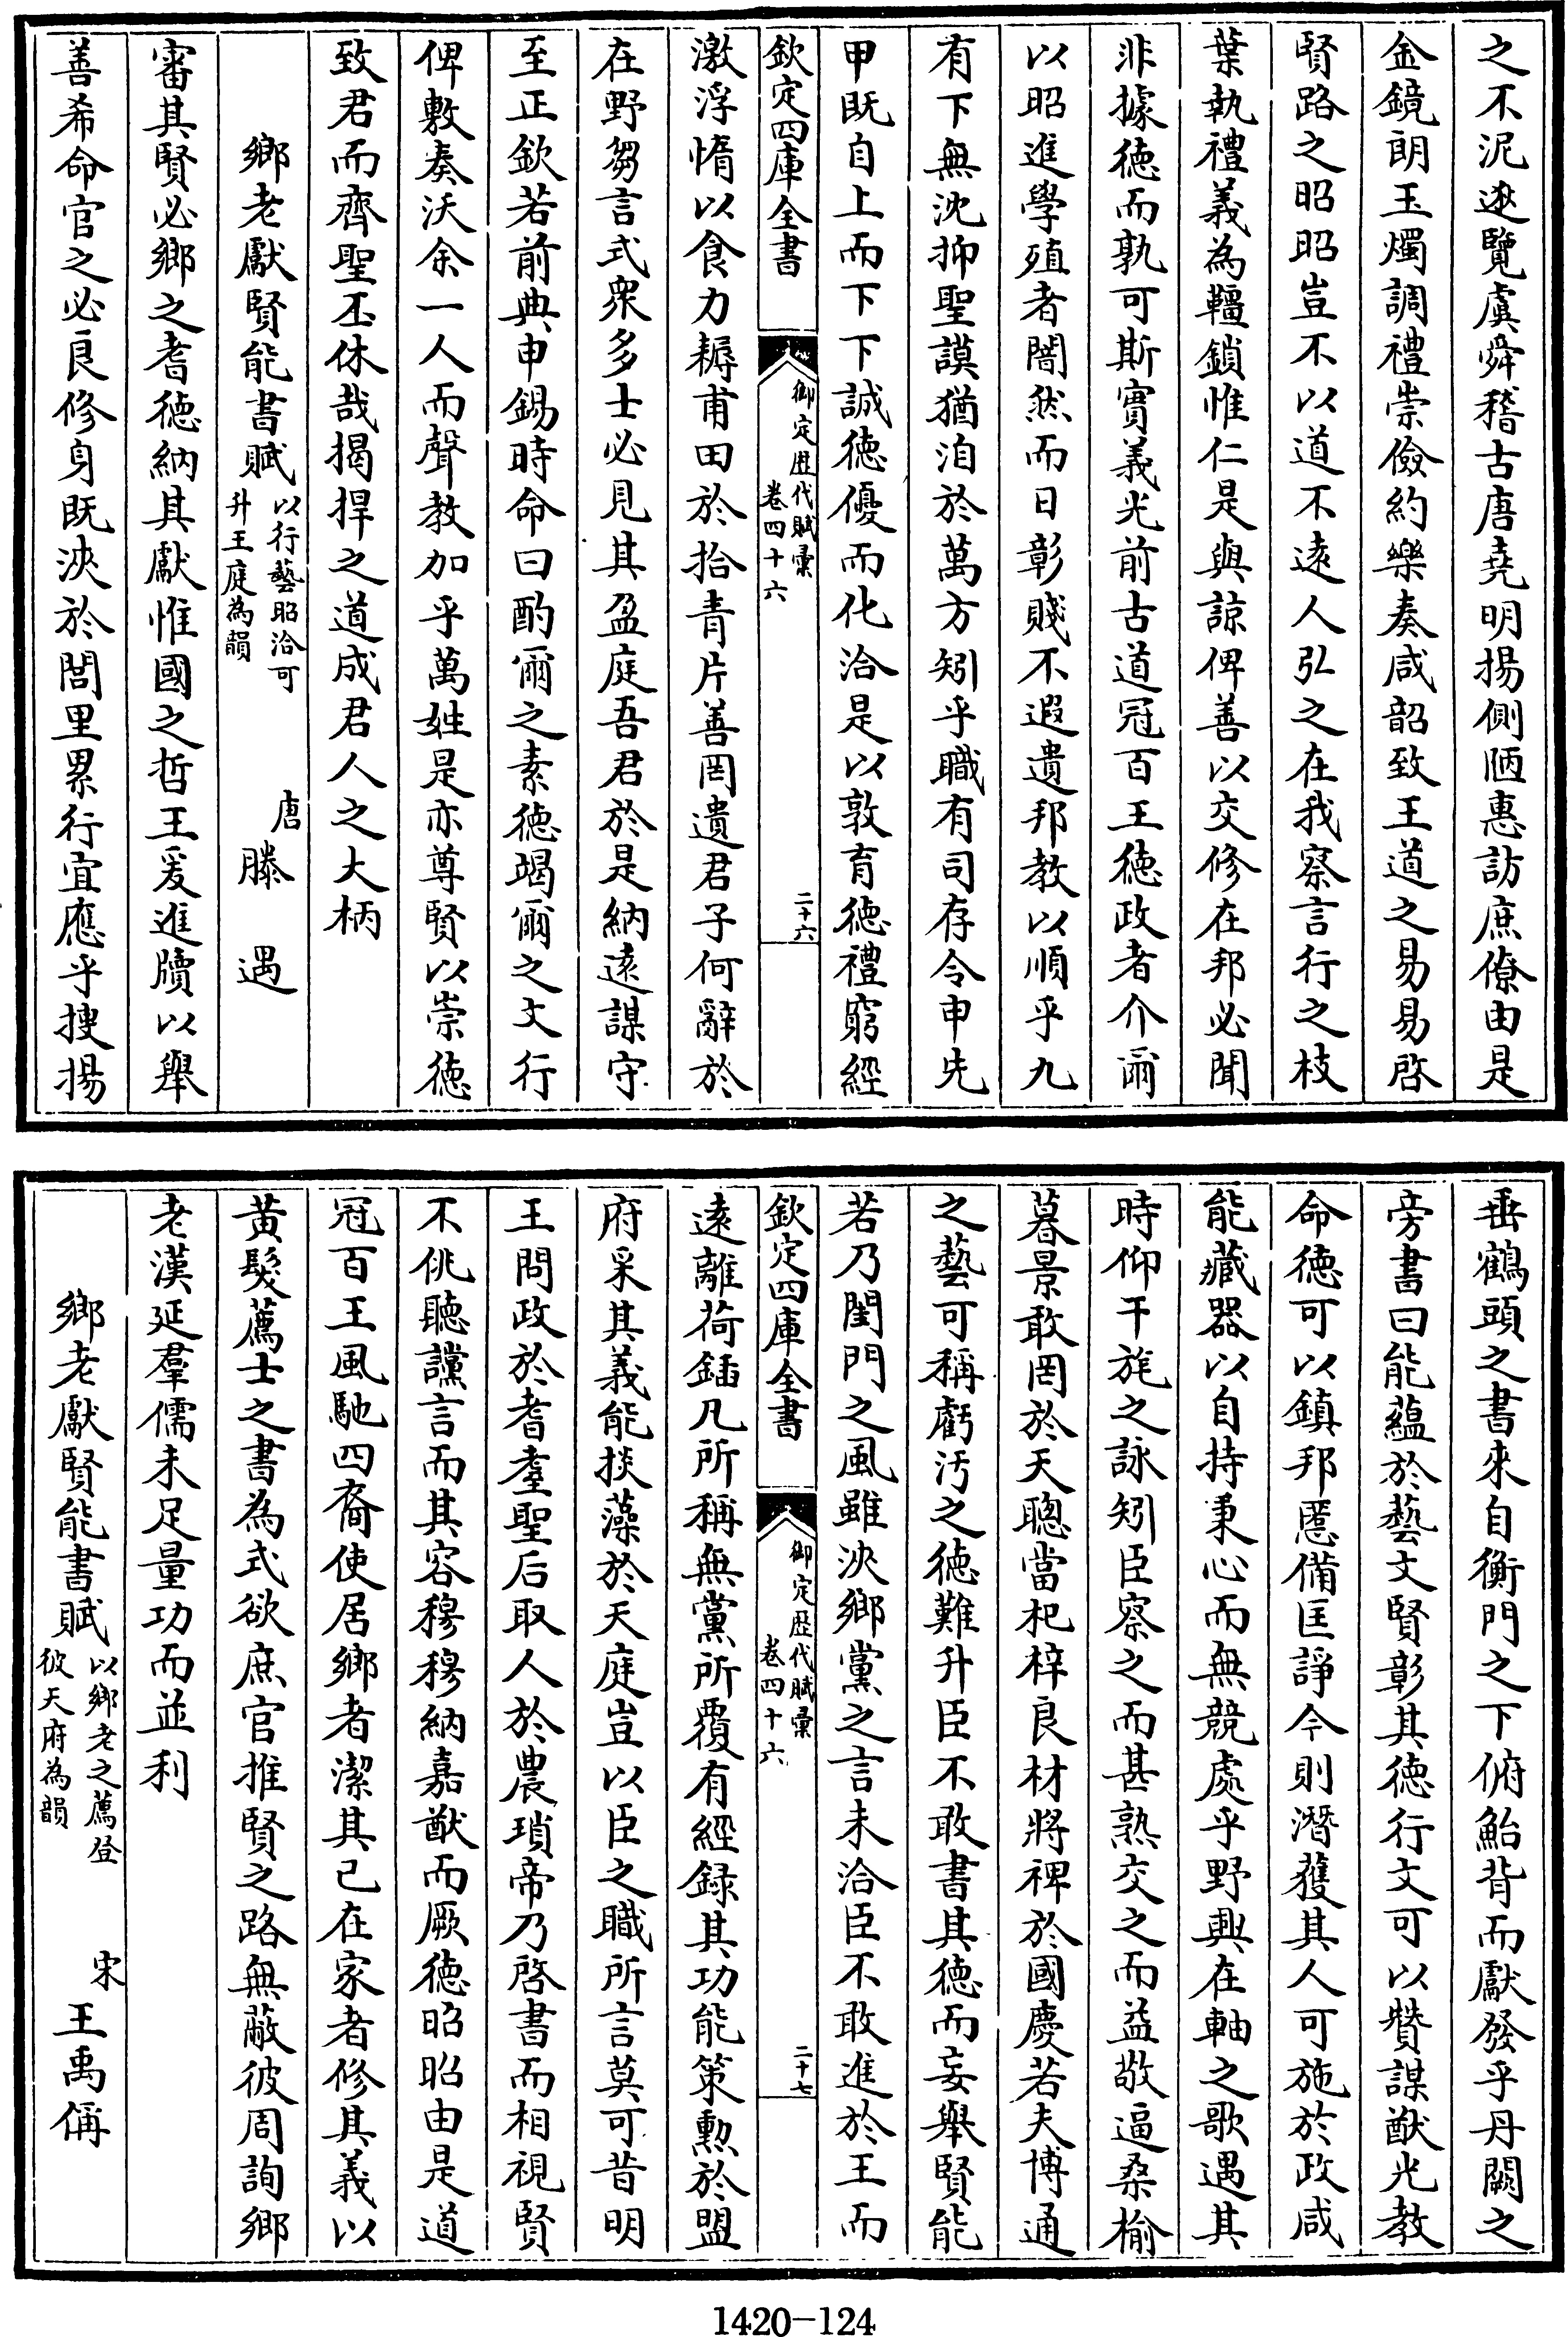 之不泥遐覽虞舜稽古唐堯明揚側陋惠訪庶僚由是
金鏡朗玉燭調禮崇儉約樂奏咸韶致王道之易易啓
賢路之昭昭豈不以道不遠人弘之在我察言行之枝
葉執禮義為韁鎖惟仁是與諒俾善以交修在邦必聞
非據徳而孰可斯實義光前古道冠百王徳政者介爾
以昭進學殖者闇然而日彰賤不遐遺邦教以順乎九
有下無沈抑聖謨猶洎於萬方矧乎職有司存令申先
甲既自上而下下誠徳優而化洽是以敦育徳禮窮經
欽定四庫全書
御定歴代賦彙
卷四十六
二十六
激浮惰以食力耨甫田於拾青片善罔遺君子何辭於
在野芻言式衆多士必見其盈庭吾君於是納遠謀守
至正欽若前典申錫時命曰酌爾之素徳竭爾之文行
俾敷奏沃余一人而聲教加乎萬姓是亦尊賢以崇徳
致君而齊聖丕休哉揭捍之道成君人之大柄
鄉老獻賢能書賦
以行藝昭洽可
升王庭為韻
唐
滕遇
審其賢必鄉之耆徳納其獻惟國之哲王爰進牘以舉
善希命官之必良修身既浹於閭里累行宜應乎搜揚
垂鶴頭之書來自衡門之下俯鮐背而獻發乎丹闕之
旁書曰能蘊於藝文賢彰其徳行文可以贊謀猷光教
命徳可以鎮邦慝備匡諍今則潛獲其人可施於政咸
能藏器以自持秉心而無競處乎野興在軸之歌遇其
時仰干旄之詠矧臣察之而甚熟交之而益敬逼桑榆
暮景敢罔於天聰當杞梓良材將裨於國慶若夫博通
之藝可稱虧汚之徳難升臣不敢書其徳而妄舉賢能
若乃閨門之風雖浹鄉黨之言未洽臣不敢進於王而
欽定四庫全書
御定歴代賦彙
卷四十六
二十七
遠離荷鍤凡所稱無黨所覆有經録其功能策勲於盟
府采其義能掞藻於天庭豈以臣之職所言莫可昔明
王問政於耆耋聖后取人於農瑣帝乃啓書而相視賢
不佻聽讜言而其容穆穆納嘉猷而厥徳昭昭由是道
冠百王風馳四裔使居鄉者潔其已在家者修其義以
黄髮薦士之書為式欲庶官推賢之路無蔽彼周詢鄉
老漢延羣儒未足量功而並利
鄉老獻賢能書賦
以鄉老之薦登
彼天府為韻
宋
王禹偁
1420-124